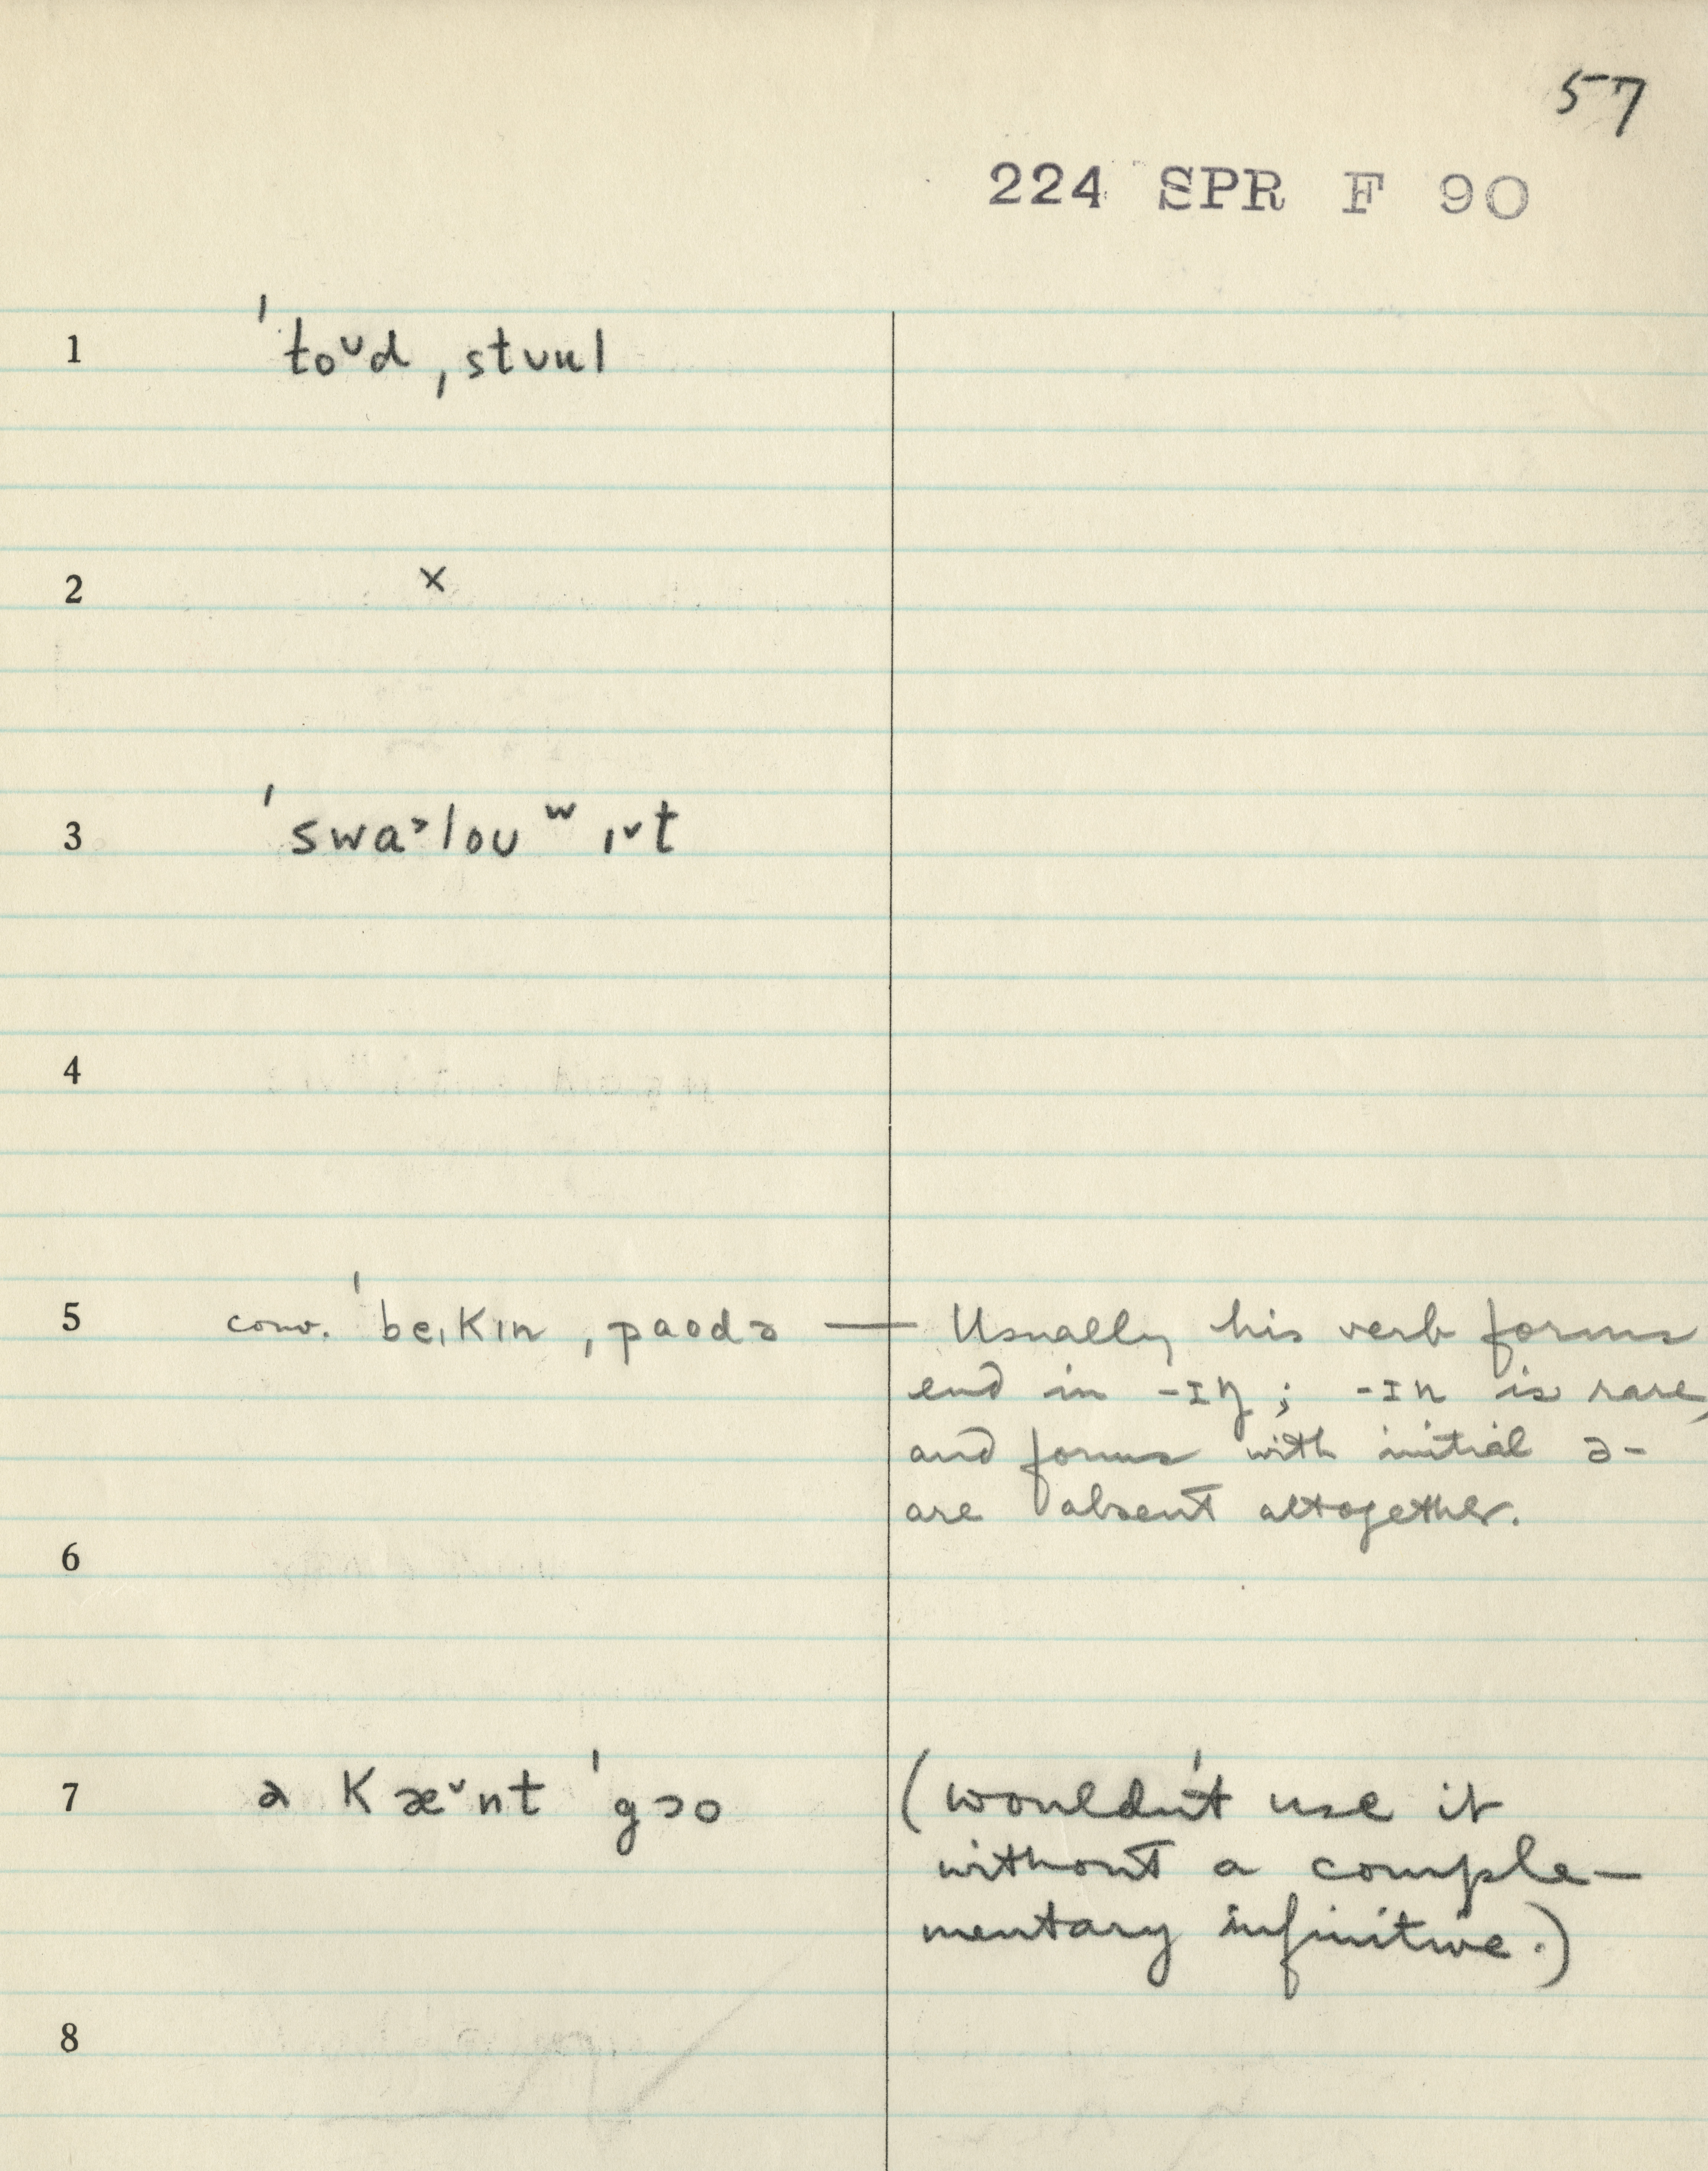 57
224 SPR F 90
1 ˈtoᵛd ˌstuul
2 x
3 ˈswa˃lou ʷ ɪ˅t
4
5 conv. ˈbeɪkɪn ˌpaodə — Usually his verb forms
end in -ɪŋ; -ɪn is rare,
and forms with initial ə-
are absent altogether.
6
7 ə kæ˅nt ˈgəo (wouldn't use it
without a comple-
mentary infinitive.)
8